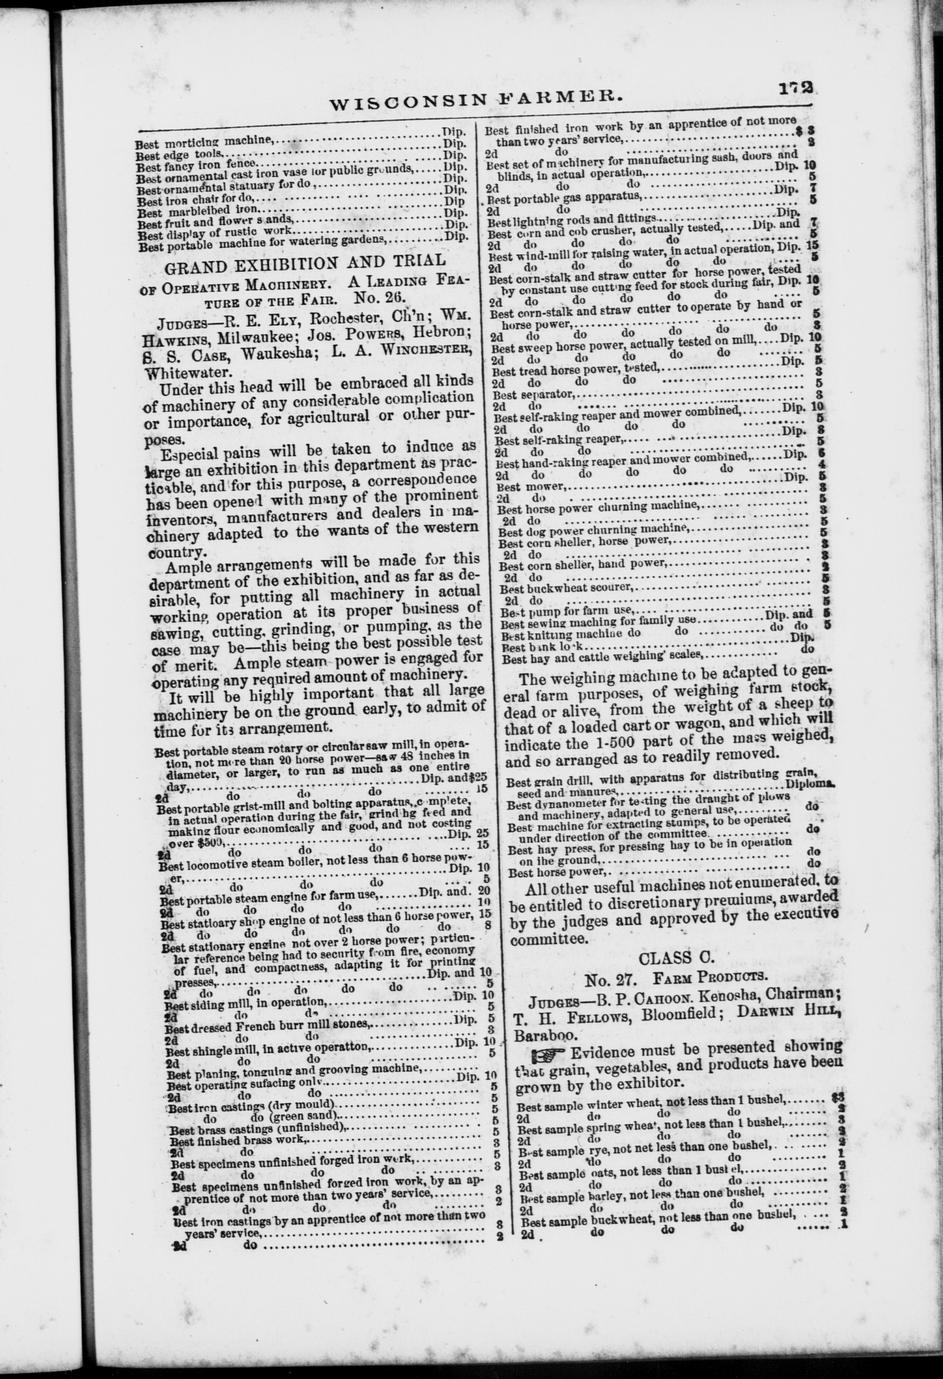 WISCONSIN FARMER. 173
Best morticing machine,........................Dip.
Best edge tools................................Dip.
Best fancy iron fence..........................Dip.
Best ornamental cast iron vase for public grounds,.....Dip.
Best ornamental statuary for do,...............Dip.
Best iron chair for do,........................Dip.
Best marbleized iron...........................Dip
Best fruit and flower stands,..................Dip.
Best display of rustic work....................Dip.
Best portable machine for watering gardens,..........Dip.
GRAND EXHIBITION AND TRIAL
OF OPERATIVE MACHINERY. A LEADING FEA-
TURE OF THE FAIR. No. 26.
JUDGES—R. E. ELY, Rochester, Ch'n; WM.
HAWKINS, Milwaukee; JOS. POWERS, Hebron;
S. S. CASE, Waukesha; L. A. WINCHESTER,
Whitewater.
Under this head will be embraced all kinds
of machinery of any considerable complication
or importance, for agricultural or other pur-
poses.
Especial pains will be taken to induce as
large an exhibition in this department as prac-
ticable, and for this purpose, a correspondence
has been opened with many of the prominent
inventors, manufacturers and dealers in ma-
chinery adapted to the wants of the western
country.
Ample arrangements will be made for this
department of the exhibition, and as far as de-
sirable, for putting all machinery in actual
working operation at its proper business of
sawing, cutting, grinding, or pumping, as the
case may be—this being the best possible test
of merit. Ample steam power is engaged for
operating any required amount of machinery.
It will be highly important that all large
machinery be on the ground early, to admit of
time for its arrangement.
Best portable steam rotary or circular saw mill, in opera-
tion, not more than 20 horse power—saw 48 inches in
diameter, or larger, to run as much as one entire
day,..............................Dip. and $25
2d do do ........ 15
Best portable grist-mill and bolting apparatus, complete,
in actual operation during the fair, grinding feed and
making flour economically and good, and not costing
over $500,..............................Dip. 25
2d do do .... 15
Best locomotive steam boiler, not less than 6 horse pow-
er,..............................Dip. 10
2d do do .... 5
Best portable steam engine for farm use,......Dip. and. 20
2d do do do .............. 10
Best stationary shop engine of not less than 6 horse power, 15
2d do do do do do 8
Best stationary engine not over 2 horse power; particu-
lar reference being had to security from fire, economy
of fuel, and compactness, adapting it for printing
presses,..............................Dip. and 10
2d do do do do ........ 5
Best siding mill, in operation,..................Dip. 10
2d do do .............. 5
Best dressed French burr mill stones,............Dip. 5
2d do do .............. 3
Best shingle mill, in active operatton,............Dip. 10
2d do do .............. 5
Best planing, tonguing and grooving machine,..........
Best operating sufacing only....................Dip. 10
2d do do .............. 5
Best iron castings (dry mould)................ 5
do do (green sand)................ 5
Best brass castings (unfinished),................ 5
Best finished brass work,................ 5
2d do ................ 3
Best specimens unfinished forged iron work,............ 5
2d do do do ............ 3
Best specimens unfinished forged iron work, by an ap-
prentice of not more than two years' service,......... 3
2d do do do ......... 2
Best iron castings by an apprentice of not more than two
years' service,................ 3
2d do ................ 2
Best finished iron work by an apprentice of not more
than two years' service,................$ 3
2d do ................ 2
Best set of machinery for manufacturing sash, doors and
blinds, in actual operation,................Dip. 10
2d do do ................ 5
Best portable gas apparatus,................Dip. 7
2d do ................ 5
Best lightning rods and fittings................Dip.
Best corn and cob crusher, actually tested,.....Dip. and 7
2d do do do do ............ 5
Best wind-mill for raising water, in actual operation, Dip. 15
2d do do do do do .... 5
Best corn-stalk and straw cutter for horse power, tested
by constant use cutting feed for stock during fair, Dip. 10
2d do do do do do ..... 5
Best corn-stalk and straw cutter to operate by hand or
horse power,................ 5
2d do do do do do do 3
Best sweep horse power, actually tested on mill,....Dip. 10
2d do do do do do ....... 5
Best tread horse power, tested,................Dip. 5
2d do do do ................ 3
Best separator,................ 5
2d do ................ 3
Best self-raking reaper and mower combined,.......Dip. 10
2d do do do do ......... 5
Best self-raking reaper,................Dip. 8
2d do do ................ 5
Best hand-raking reaper and mower combined,......Dip. 6
2d do do do do do ......... 4
Best mower,................Dip. 5
2d do ................ 3
Best horse power churning machine,................ 5
2d do ................ 3
Best dog power churning machine,................ 5
Best corn sheller, horse power,................ 3
2d do ................ 3
Best corn sheller, hand power,................ 2
2d do ................ 5
Best buckwheat scourer,................ 3
2d do ................
Best pump for farm use,................ 5
Best sewing maching for family use............Dip. and 5
Best knitting machine do do ............ do do 5
Best bank lock................Dip.
Best hay and cattle weighing scales,............ do
The weighing machine to be adapted to gen-
eral farm purposes, of weighing farm stock,
dead or alive, from the weight of a sheep to
that of a loaded cart or wagon, and which will
indicate the 1-500 part of the mass weighed,
and so arranged as to readily removed.
Best grain drill, with apparatus for distributing grain,
seed and manures,................Diploma.
Best dynanometer for testing the draught of plows
and machinery, adapted to general use,......... do
Best machine for extracting stumps, to be operated
under direction of the committee................ do
Best hay press, for pressing hay to be in operation
on the ground,................ do
Best horse power,................ do
All other useful machines not enumerated, to
be entitled to discretionary premiums, awarded
by the judges and approved by the executive
committee.
CLASS C.
No. 27. FARM PRODUCTS.
JUDGES—B. P. CAHOON. Kenosha, Chairman;
T. H. FELLOWS, Bloomfield; DARWIN HILL,
Baraboo.
☞ Evidence must be presented showing
that grain, vegetables, and products have been
grown by the exhibitor.
Best sample winter wheat, not less than 1 bushel,....... $3
2d do do do ....... 2
Best sample spring wheat, not less than 1 bushel,....... 3
2d do do do ....... 2
Best sample rye, not net less than one bushel,........ 2
2d do do do ........ 1
Best sample oats, not less than 1 bushel,.............. 2
2d do do do .............. 1
Best sample barley, not less than one bushel, .......... 2
2d do do do .......... 1
Best sample buckwheat, not less than one bushel, ..... 2
2d. do do do ...... 1